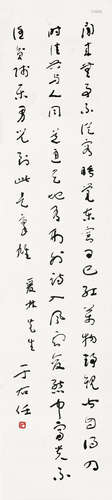 閒來無事不從容睡覺東窗日已紅萬物靜觀皆自得四
時佳興與人同道通天地有形外思入風雲變態中富貴不
淫貧賤樂男兒到此是豪雄
林先生
于右任